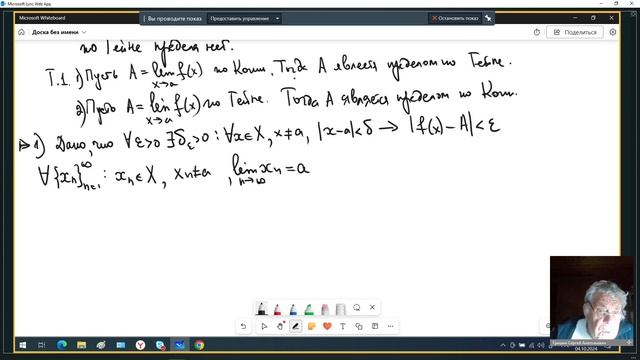 Microsoft Lync Web App
Microsoft Whiteboard
Вы проводите показ
Предоставить управление
Остановить показ
Доска без имени
Поделиться
по Гейне предела нет.
Т.1. 1) Пусть A = lim f(x) по Коши. Тогда A является пределом по Гейне.
x→a
2) Пусть A = lim f(x) по Гейне. Тогда A является пределом по Коши.
x→a
1) Дано, что ∀ε>0 ∃δ_ε>0 : ∀x∈X, x≠a, |x-a|<δ → |f(x)-A|<ε
∀{x_n}_{n=1}^∞ : x_n∈X, x_n≠a, lim x_n = a
n→∞
04.10.2024